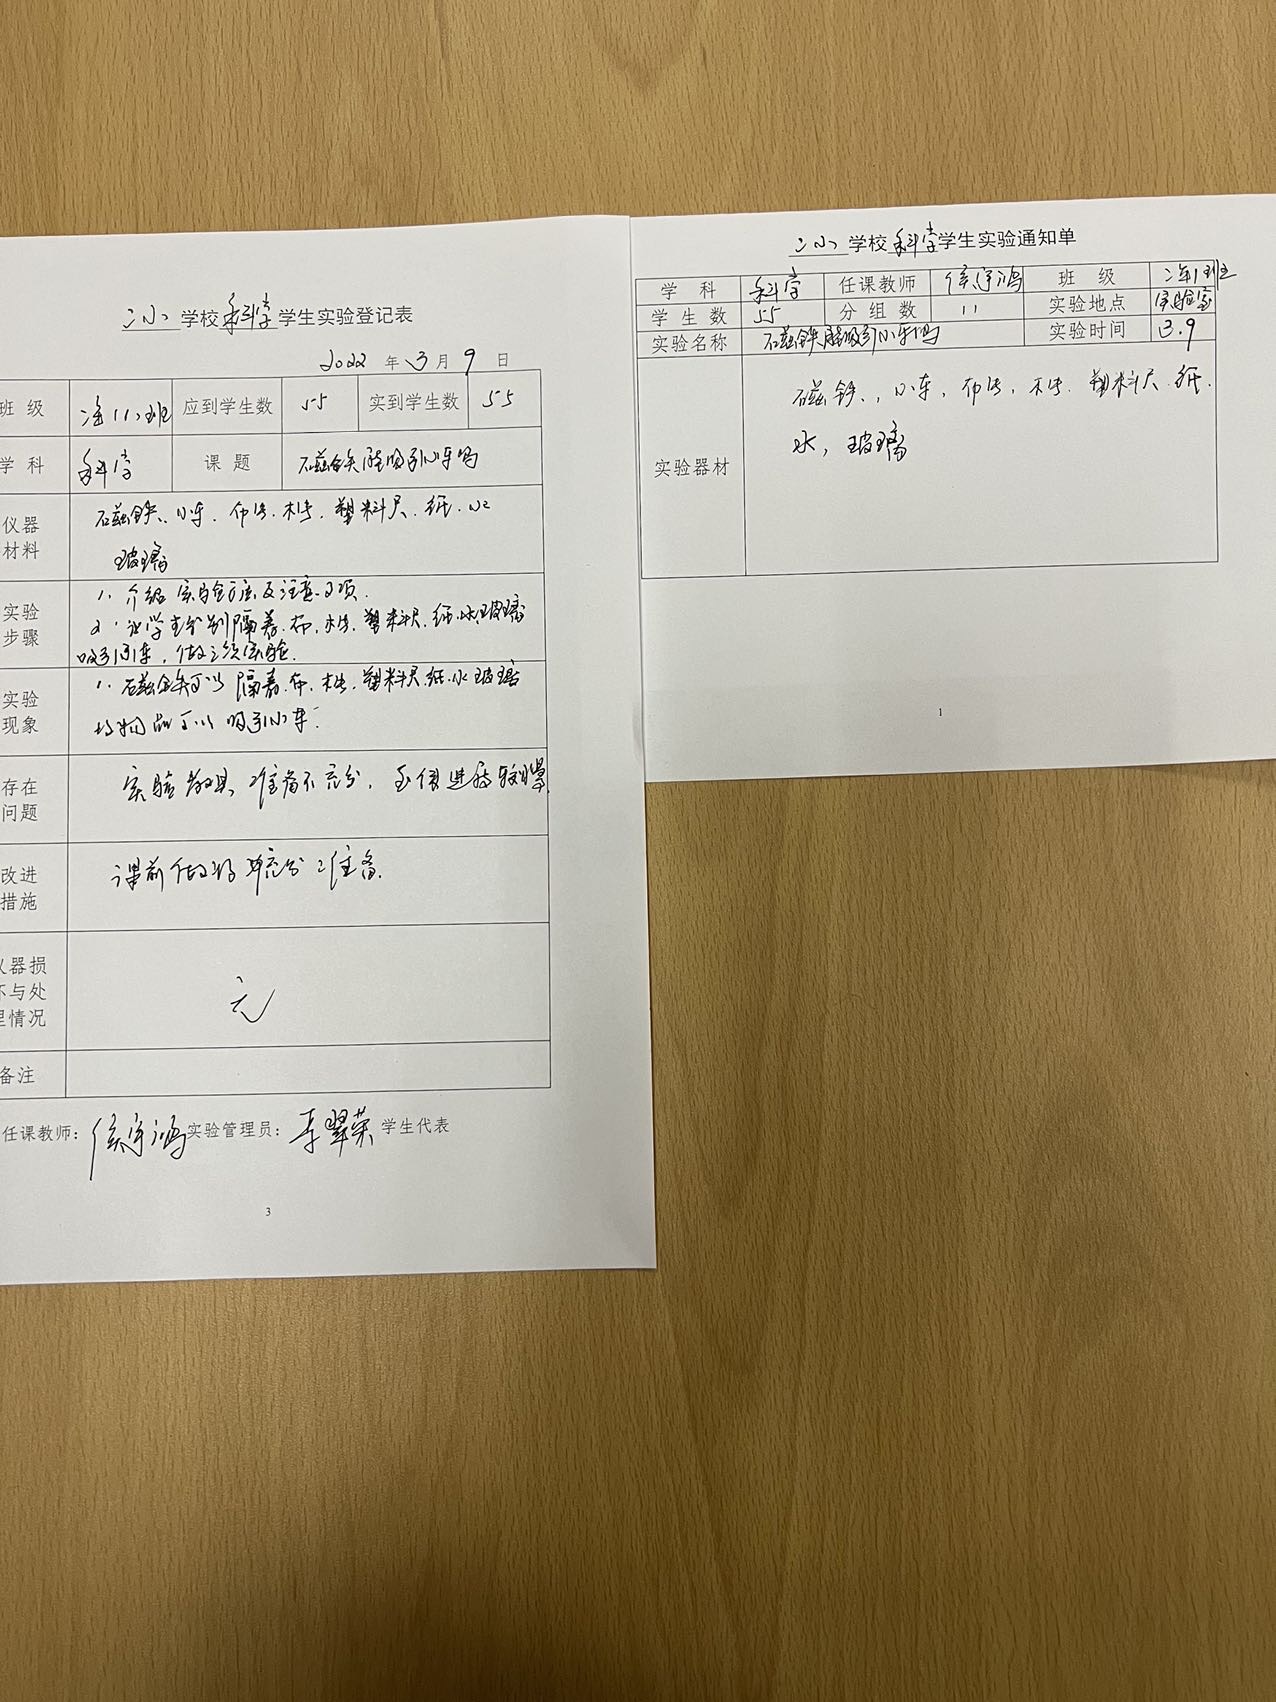 二小 学校 科学 学生实验登记表
2022 年 3 月 9 日
班 级 二年(1)班 应到学生数 55 实到学生数 55
学 科 科学 课 题 石磁铁能吸引小车吗
仪器
材料
石磁铁、小车、布片、木片、塑料尺、纸、水
玻璃
实验
步骤
1、介绍实验方法及注意事项.
2、让学生分别隔着.布.木片.塑料尺.纸.水.玻璃
吸引小车,做实验.
实验
现象
1、石磁铁可以隔着.布.木片.塑料尺.纸.水.玻璃
物品可以吸引小车.
存在
问题
实验教具准备不充分,
改进
措施
课前做好充分准备.
仪器损
坏与处
理情况
无
备注
任课教师: 实验管理员: 李翠荣 学生代表
3
二小 学校 科学 学生实验通知单
学 科 科学 任课教师 班 级 二年1班
学 生 数 55 分 组 数 11 实验地点 实验室
实验名称 石磁铁能吸引小车吗 实验时间 3.9
实验器材
石磁铁、小车,布片,木片.塑料尺.纸.
水,玻璃
1